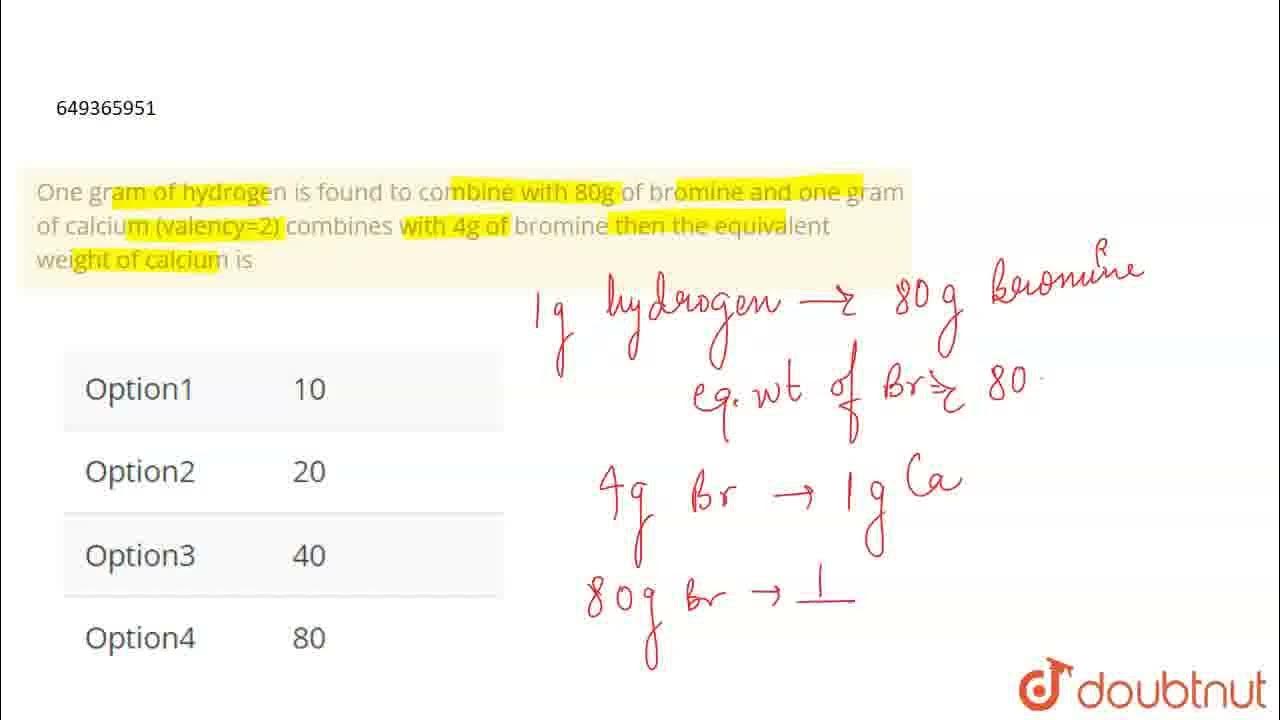 649365951
One gram of hydrogen is found to combine with 80g of bromine and one gram
of calcium (valency=2) combines with 4g of bromine then the equivalent
weight of calcium is
1g hydrogen → 80g bromine
eq. wt of Br ⇒ 80
Option1 10
4g Br → 1g Ca
Option2 20
Option3 40
80g Br → 1
Option4 80
doubtnut